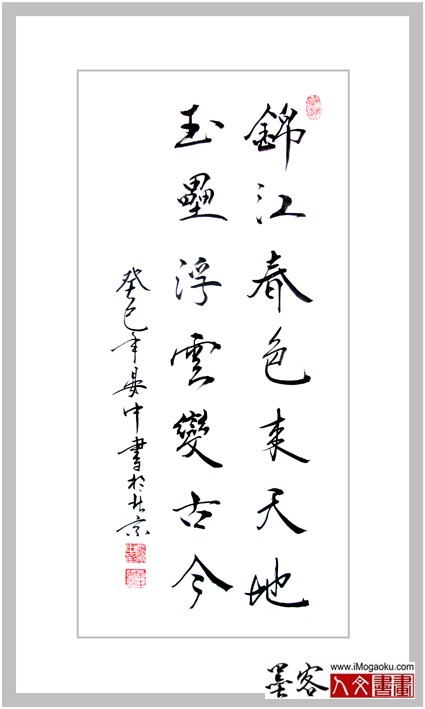 錦江春色來天地
玉壘浮雲變古今
癸巳年晏中書於北京
墨客
www.iMogaoku.com
人文書畫